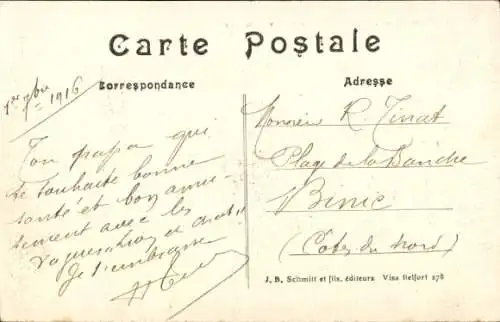 Carte Postale
Correspondance
Adresse
1er 7bre 1916
Ton papa qui
te souhaite bonne
santé et bon amu-
sement avec les
vagues
Je t'embrasse
Monsieur R. Tinat
Plage de la Banche
Binic
(Côtes du Nord)
J. B. Schmitt et fils, éditeurs Visa Belfort 278